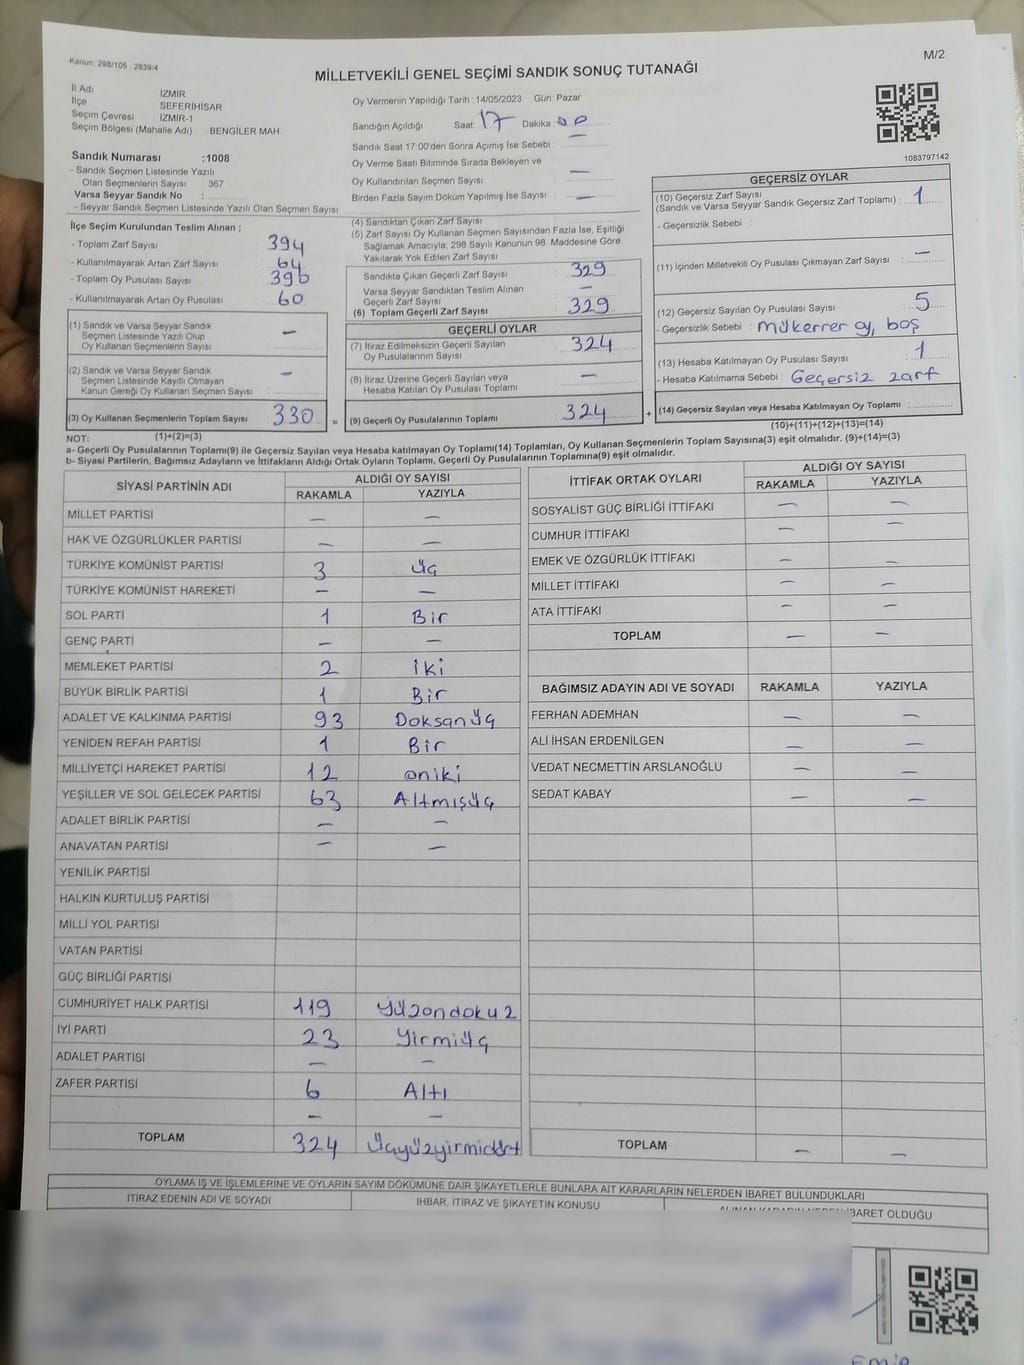 Kanun: 298/105 , 2839/4
M/2
MİLLETVEKİLİ GENEL SEÇİMİ SANDIK SONUÇ TUTANAĞI
İl Adı : İZMİR
İlçe : SEFERİHİSAR
Seçim Çevresi : İZMİR-1
Seçim Bölgesi (Mahalle Adı) : BENGİLER MAH.
Sandık Numarası :1008
- Sandık Seçmen Listesinde Yazılı
Olan Seçmenlerin Sayısı : 367
Varsa Seyyar Sandık No :
- Seyyar Sandık Seçmen Listesinde Yazılı Olan Seçmen Sayısı
Oy Vermenin Yapıldığı Tarih :14/05/2023 Gün: Pazar
Sandığın Açıldığı Saat 17 Dakika 00
Sandık Saat 17:00'den Sonra Açımış İse Sebebi : —
Oy Verme Saati Bitiminde Sırada Bekleyen ve
Oy Kullandırılan Seçmen Sayısı —
Birden Fazla Sayım Döküm Yapılmış İse Sayısı —
1083797142
İlçe Seçim Kurulundan Teslim Alınan ;
- Toplam Zarf Sayısı : 394
- Kullanılmayarak Artan Zarf Sayısı : 64
- Toplam Oy Pusulası Sayısı : 390
- Kullanılmayarak Artan Oy Pusulası : 60
(1) Sandık ve Varsa Seyyar Sandık
Seçmen Listesinde Yazılı Olup
Oy Kullanan Seçmenlerin Sayısı : —
(2) Sandık ve Varsa Seyyar Sandık
Seçmen Listesinde Kayıtlı Olmayan
Kanun Gereği Oy Kullanan Seçmen Sayısı : —
(3) Oy Kullanan Seçmenlerin Toplam Sayısı : 330
(4) Sandıktan Çıkan Zarf Sayısı :
(5) Zarf Sayısı Oy Kullanan Seçmen Sayısından Fazla İse, Eşitliği
Sağlamak Amacıyla; 298 Sayılı Kanunun 98. Maddesine Göre
Yakılarak Yok Edilen Zarf Sayısı :
Sandıkta Çıkan Geçerli Zarf Sayısı : 329
Varsa Seyyar Sandıktan Teslim Alınan
Geçerli Zarf Sayısı : —
(6) Toplam Geçerli Zarf Sayısı : 329
GEÇERLİ OYLAR
(7) İtiraz Edilmeksizin Geçerli Sayılan
Oy Pusulalarının Sayısı : 324
(8) İtiraz Üzerine Geçerli Sayılan veya
Hesaba Katılan Oy Pusulası Toplamı : —
= (9) Geçerli Oy Pusulalarının Toplamı : 324 +
GEÇERSİZ OYLAR
(10) Geçersiz Zarf Sayısı
(Sandık ve Varsa Seyyar Sandık Geçersiz Zarf Toplamı) : 1
- Geçersizlik Sebebi :
(11) İçinden Milletvekili Oy Pusulası Çıkmayan Zarf Sayısı : —
(12) Geçersiz Sayılan Oy Pusulası Sayısı : 5
- Geçersizlik Sebebi : mükerrer oy, boş
(13) Hesaba Katılmayan Oy Pusulası Sayısı : 1
- Hesaba Katılmama Sebebi : Geçersiz zarf
(14) Geçersiz Sayılan veya Hesaba Katılmayan Oy Toplamı :
(10)+(11)+(12)+(13)=(14)
NOT: (1)+(2)=(3)
a- Geçerli Oy Pusulalarının Toplamı(9) ile Geçersiz Sayılan veya Hesaba katılmayan Oy Toplamı(14) Toplamları, Oy Kullanan Seçmenlerin Toplam Sayısına(3) eşit olmalıdır. (9)+(14)=(3)
b- Siyasi Partilerin, Bağımsız Adayların ve İttifakların Aldığı Ortak Oyların Toplamı, Geçerli Oy Pusulalarının Toplamına(9) eşit olmalıdır.
SİYASİ PARTİNİN ADI ALDIĞI OY SAYISI
RAKAMLA YAZIYLA
MİLLET PARTİSİ — —
HAK VE ÖZGÜRLÜKLER PARTİSİ — —
TÜRKİYE KOMÜNİST PARTİSİ 3 Üç
TÜRKİYE KOMÜNİST HAREKETİ — —
SOL PARTİ 1 Bir
GENÇ PARTİ — —
MEMLEKET PARTİSİ 2 iki
BÜYÜK BİRLİK PARTİSİ 1 Bir
ADALET VE KALKINMA PARTİSİ 93 Doksan Üç
YENİDEN REFAH PARTİSİ 1 Bir
MİLLİYETÇİ HAREKET PARTİSİ 12 oniki
YEŞİLLER VE SOL GELECEK PARTİSİ 63 Altmışüç
ADALET BİRLİK PARTİSİ — —
ANAVATAN PARTİSİ — —
YENİLİK PARTİSİ
HALKIN KURTULUŞ PARTİSİ
MİLLİ YOL PARTİSİ
VATAN PARTİSİ
GÜÇ BİRLİĞİ PARTİSİ
CUMHURİYET HALK PARTİSİ 119 Yüzondokuz
İYİ PARTİ 23 Yirmiüç
ADALET PARTİSİ — —
ZAFER PARTİSİ 6 Altı
— —
TOPLAM 324 Üçyüzyirmidört
İTTİFAK ORTAK OYLARI ALDIĞI OY SAYISI
RAKAMLA YAZIYLA
SOSYALİST GÜÇ BİRLİĞİ İTTİFAKI — —
CUMHUR İTTİFAKI — —
EMEK VE ÖZGÜRLÜK İTTİFAKI — —
MİLLET İTTİFAKI — —
ATA İTTİFAKI — —
TOPLAM — —
BAĞIMSIZ ADAYIN ADI VE SOYADI RAKAMLA YAZIYLA
FERHAN ADEMHAN — —
ALİ İHSAN ERDENİLGEN — —
VEDAT NECMETTİN ARSLANOĞLU — —
SEDAT KABAY — —
TOPLAM — —
OYLAMA İŞ VE İŞLEMLERİNE VE OYLARIN SAYIM DÖKÜMÜNE DAİR ŞİKAYETLERLE BUNLARA AİT KARARLARIN NELERDEN İBARET BULUNDUKLARI
İTİRAZ EDENİN ADI VE SOYADI İHBAR, İTİRAZ VE ŞİKAYETİN KONUSU İBARET OLDUĞU